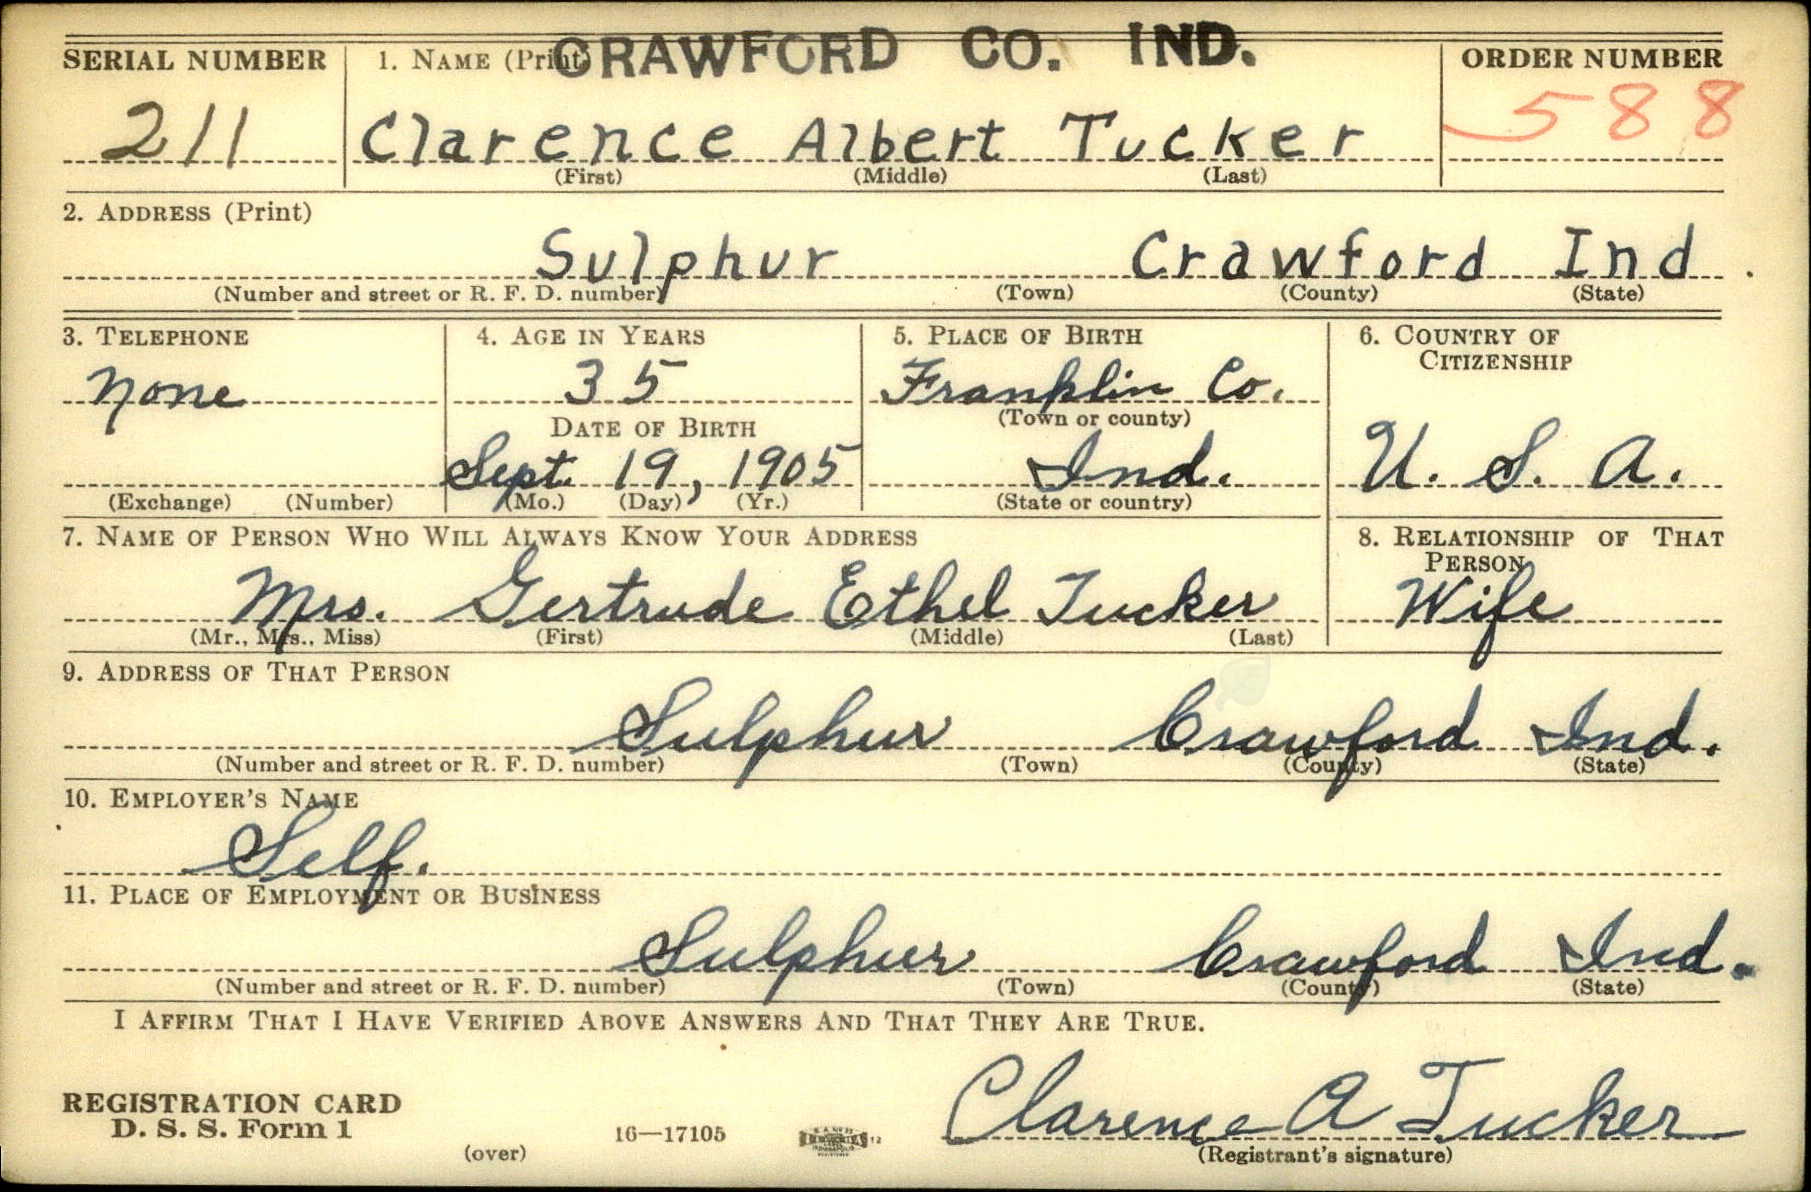 CRAWFORD CO. IND.
SERIAL NUMBER 1. NAME (Print) ORDER NUMBER
211 Clarence Albert Tucker 588
(First) (Middle) (Last)
2. ADDRESS (Print)
Sulphur Crawford Ind
(Number and street or R. F. D. number) (Town) (County) (State)
3. TELEPHONE 4. AGE IN YEARS 5. PLACE OF BIRTH 6. COUNTRY OF
CITIZENSHIP
None 35 Franklin Co.
(Town or county)
DATE OF BIRTH
Sept. 19, 1905 Ind. U. S. A.
(Exchange) (Number) (Mo.) (Day) (Yr.) (State or country)
7. NAME OF PERSON WHO WILL ALWAYS KNOW YOUR ADDRESS 8. RELATIONSHIP OF THAT
PERSON
Mrs. Gertrude Ethel Tucker Wife
(Mr., Mrs., Miss) (First) (Middle) (Last)
9. ADDRESS OF THAT PERSON
Sulphur Crawford Ind.
(Number and street or R. F. D. number) (Town) (County) (State)
10. EMPLOYER'S NAME
Self.
11. PLACE OF EMPLOYMENT OR BUSINESS
Sulphur Crawford Ind.
(Number and street or R. F. D. number) (Town) (County) (State)
I AFFIRM THAT I HAVE VERIFIED ABOVE ANSWERS AND THAT THEY ARE TRUE.
REGISTRATION CARD
D. S. S. Form 1
(over) 16—17105 Clarence A Tucker
(Registrant's signature)